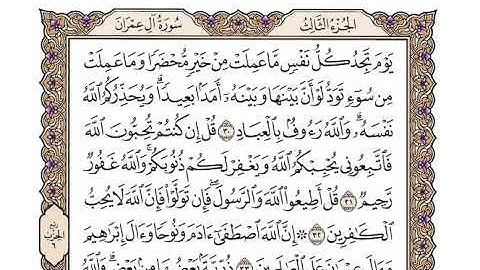 الجزء الثالث
سورة آل عمران
يَوۡمَ تَجِدُ كُلُّ نَفۡسٖ مَّا عَمِلَتۡ مِنۡ خَيۡرٖ مُّحۡضَرٗا وَمَا عَمِلَتۡ
مِن سُوٓءٖ تَوَدُّ لَوۡ أَنَّ بَيۡنَهَا وَبَيۡنَهُۥٓ أَمَدَۢا بَعِيدٗاۗ وَيُحَذِّرُكُمُ ٱللَّهُ
نَفۡسَهُۥۗ وَٱللَّهُ رَءُوفُۢ بِٱلۡعِبَادِ ٣٠ قُلۡ إِن كُنتُمۡ تُحِبُّونَ ٱللَّهَ
فَٱتَّبِعُونِي يُحۡبِبۡكُمُ ٱللَّهُ وَيَغۡفِرۡ لَكُمۡ ذُنُوبَكُمۡۚ وَٱللَّهُ غَفُورٞ
رَّحِيمٞ ٣١ قُلۡ أَطِيعُواْ ٱللَّهَ وَٱلرَّسُولَۖ فَإِن تَوَلَّوۡاْ فَإِنَّ ٱللَّهَ لَا يُحِبُّ
ٱلۡكَٰفِرِينَ ٣٢ ۞ إِنَّ ٱللَّهَ ٱصۡطَفَىٰٓ ءَادَمَ وَنُوحٗا وَءَالَ إِبۡرَٰهِيمَ
وَءَالَ عِمۡرَٰنَ عَلَى ٱلۡعَٰلَمِينَ ٣٣ ذُرِّيَّةَۢ بَعۡضُهَا مِنۢ بَعۡضٖۗ وَٱللَّهُ
ربع
الحزب
٦